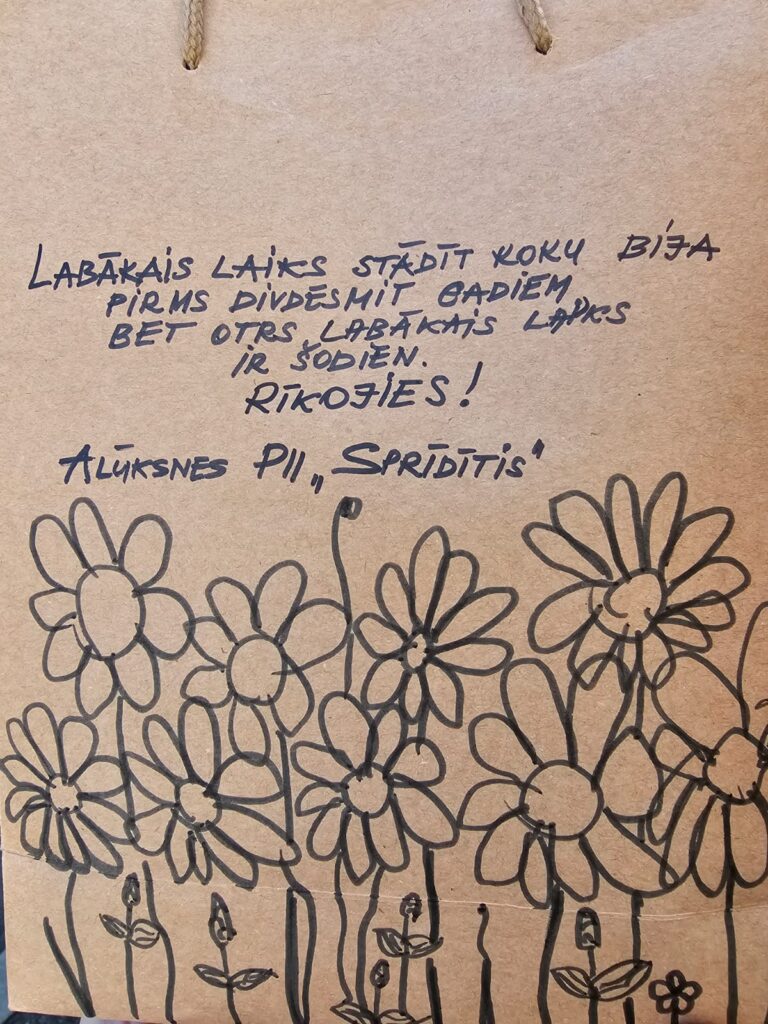 LABĀKAIS LAIKS STĀDĪT KOKU BIJA
PIRMS DIVDESMIT GADIEM,
BET OTRS LABĀKAIS LAIKS
IR ŠODIEN.
RĪKOJIES!
ALŪKSNES PII „SPRĪDĪTIS"